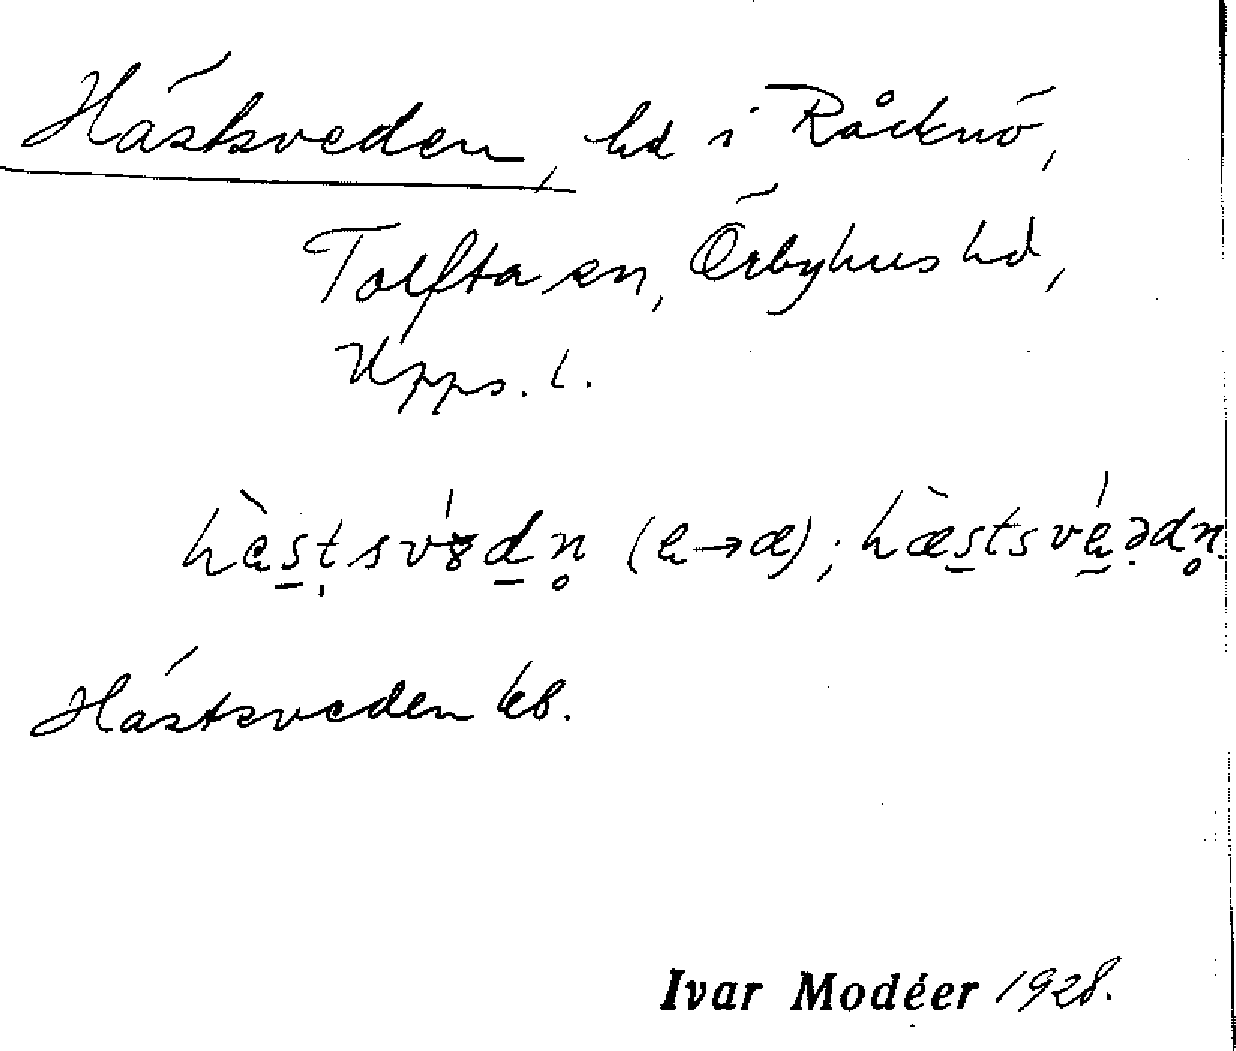 Hästsveden, hd i Råcknö,
Tolfta sn, Örbyhus hd,
Upps. l.
Hästsveden kb.
Ivar Modéer 1928.